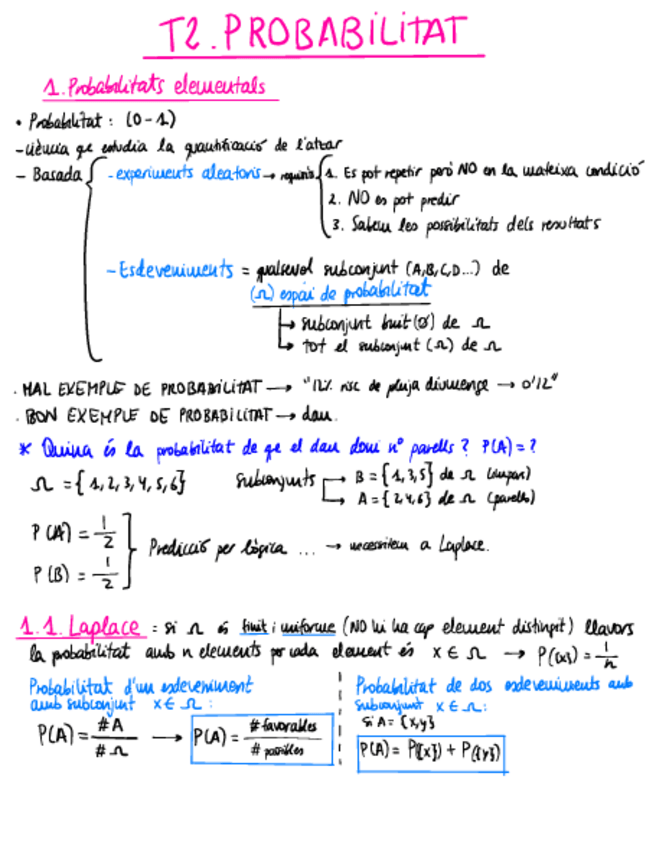 T2. PROBABILITAT
1. Probabilitats elementals
• Probabilitat: (0-1)
- ciència qe estudia la quantificació de l'atzar
- Basada { - experiments aleatoris → requisits { 1. Es pot repetir però NO en la mateixa condició
2. NO es pot predir
3. Sabem les possibilitats dels resultats
- Esdeveniments = qualsevol subconjunt (A,B,C,D...) de
(Ω) espai de probabilitat
↳ subconjunt buit (Ø) de Ω
↳ tot el subconjunt (Ω) de Ω
· MAL EXEMPLE DE PROBABILITAT → "12% risc de pluja diumenge → 0'12"
· BON EXEMPLE DE PROBABILITAT → dau.
* Quina és la probabilitat de qe el dau doni nº parells? P(A) = ?
Ω = {1,2,3,4,5,6} Subconjunts → B = {1,3,5} de Ω (imparells)
→ A = {2,4,6} de Ω (parells)
P(A) = 1/2
P(B) = 1/2 } Predicció per lògica ... → necessitem a Laplace.
1.1. Laplace = si Ω és finit i uniforme (NO hi ha cap element distingit) llavors
la probabilitat amb n elements per cada element és x ∈ Ω → P({x}) = 1/n
Probabilitat d'un esdeveniment
amb subconjunt x ∈ Ω:
P(A) = #A / #Ω → P(A) = # favorables / # possibles
Probabilitat de dos esdeveniments amb
subconjunt x ∈ Ω:
Si A = {x,y}
P(A) = P({x}) + P({y})